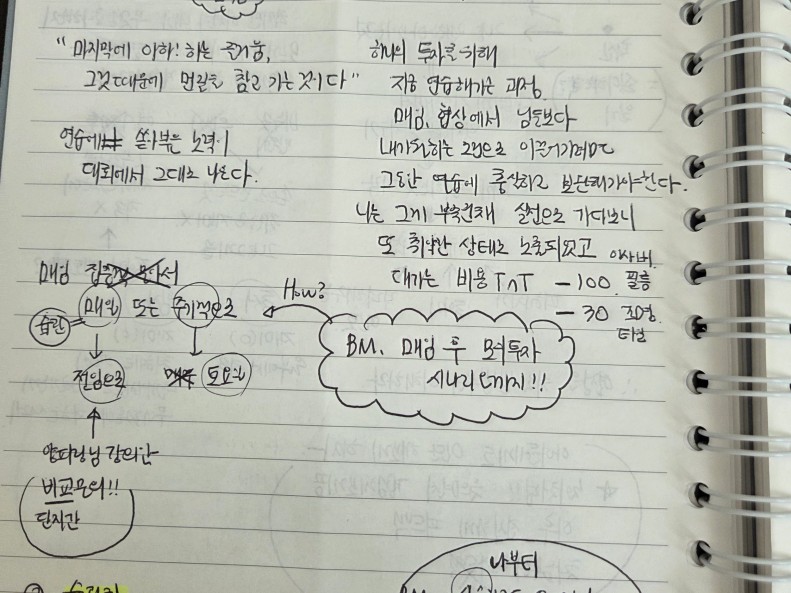 "마지막에 아하! 하는 즐거움,
그것때문에 먼길을 참고 가는것이다"
연습에 쏟아부은 노력이
대회에서 그대로 나온다.
하나의 투자를 위해
지금 연습해가는 과정.
매임, 협상에서 남들보다
내가 원하는 조건으로 이끌어가려면
그동안 연습에 충실하고 보완해가야한다.
나는 그게 부족한채 실전으로 가다보니
또 취약한 상태로 노출되었고
대가는 비용 TnT - 100 필름
- 30 조명,
매임
매일 또는 주기적으로
습관 =
전임으로
토요일
How?
BM. 매임 후 모의투자
시나리오까지!!
양파링님 강의안
비교문의!!
단지간
나부터
BM.